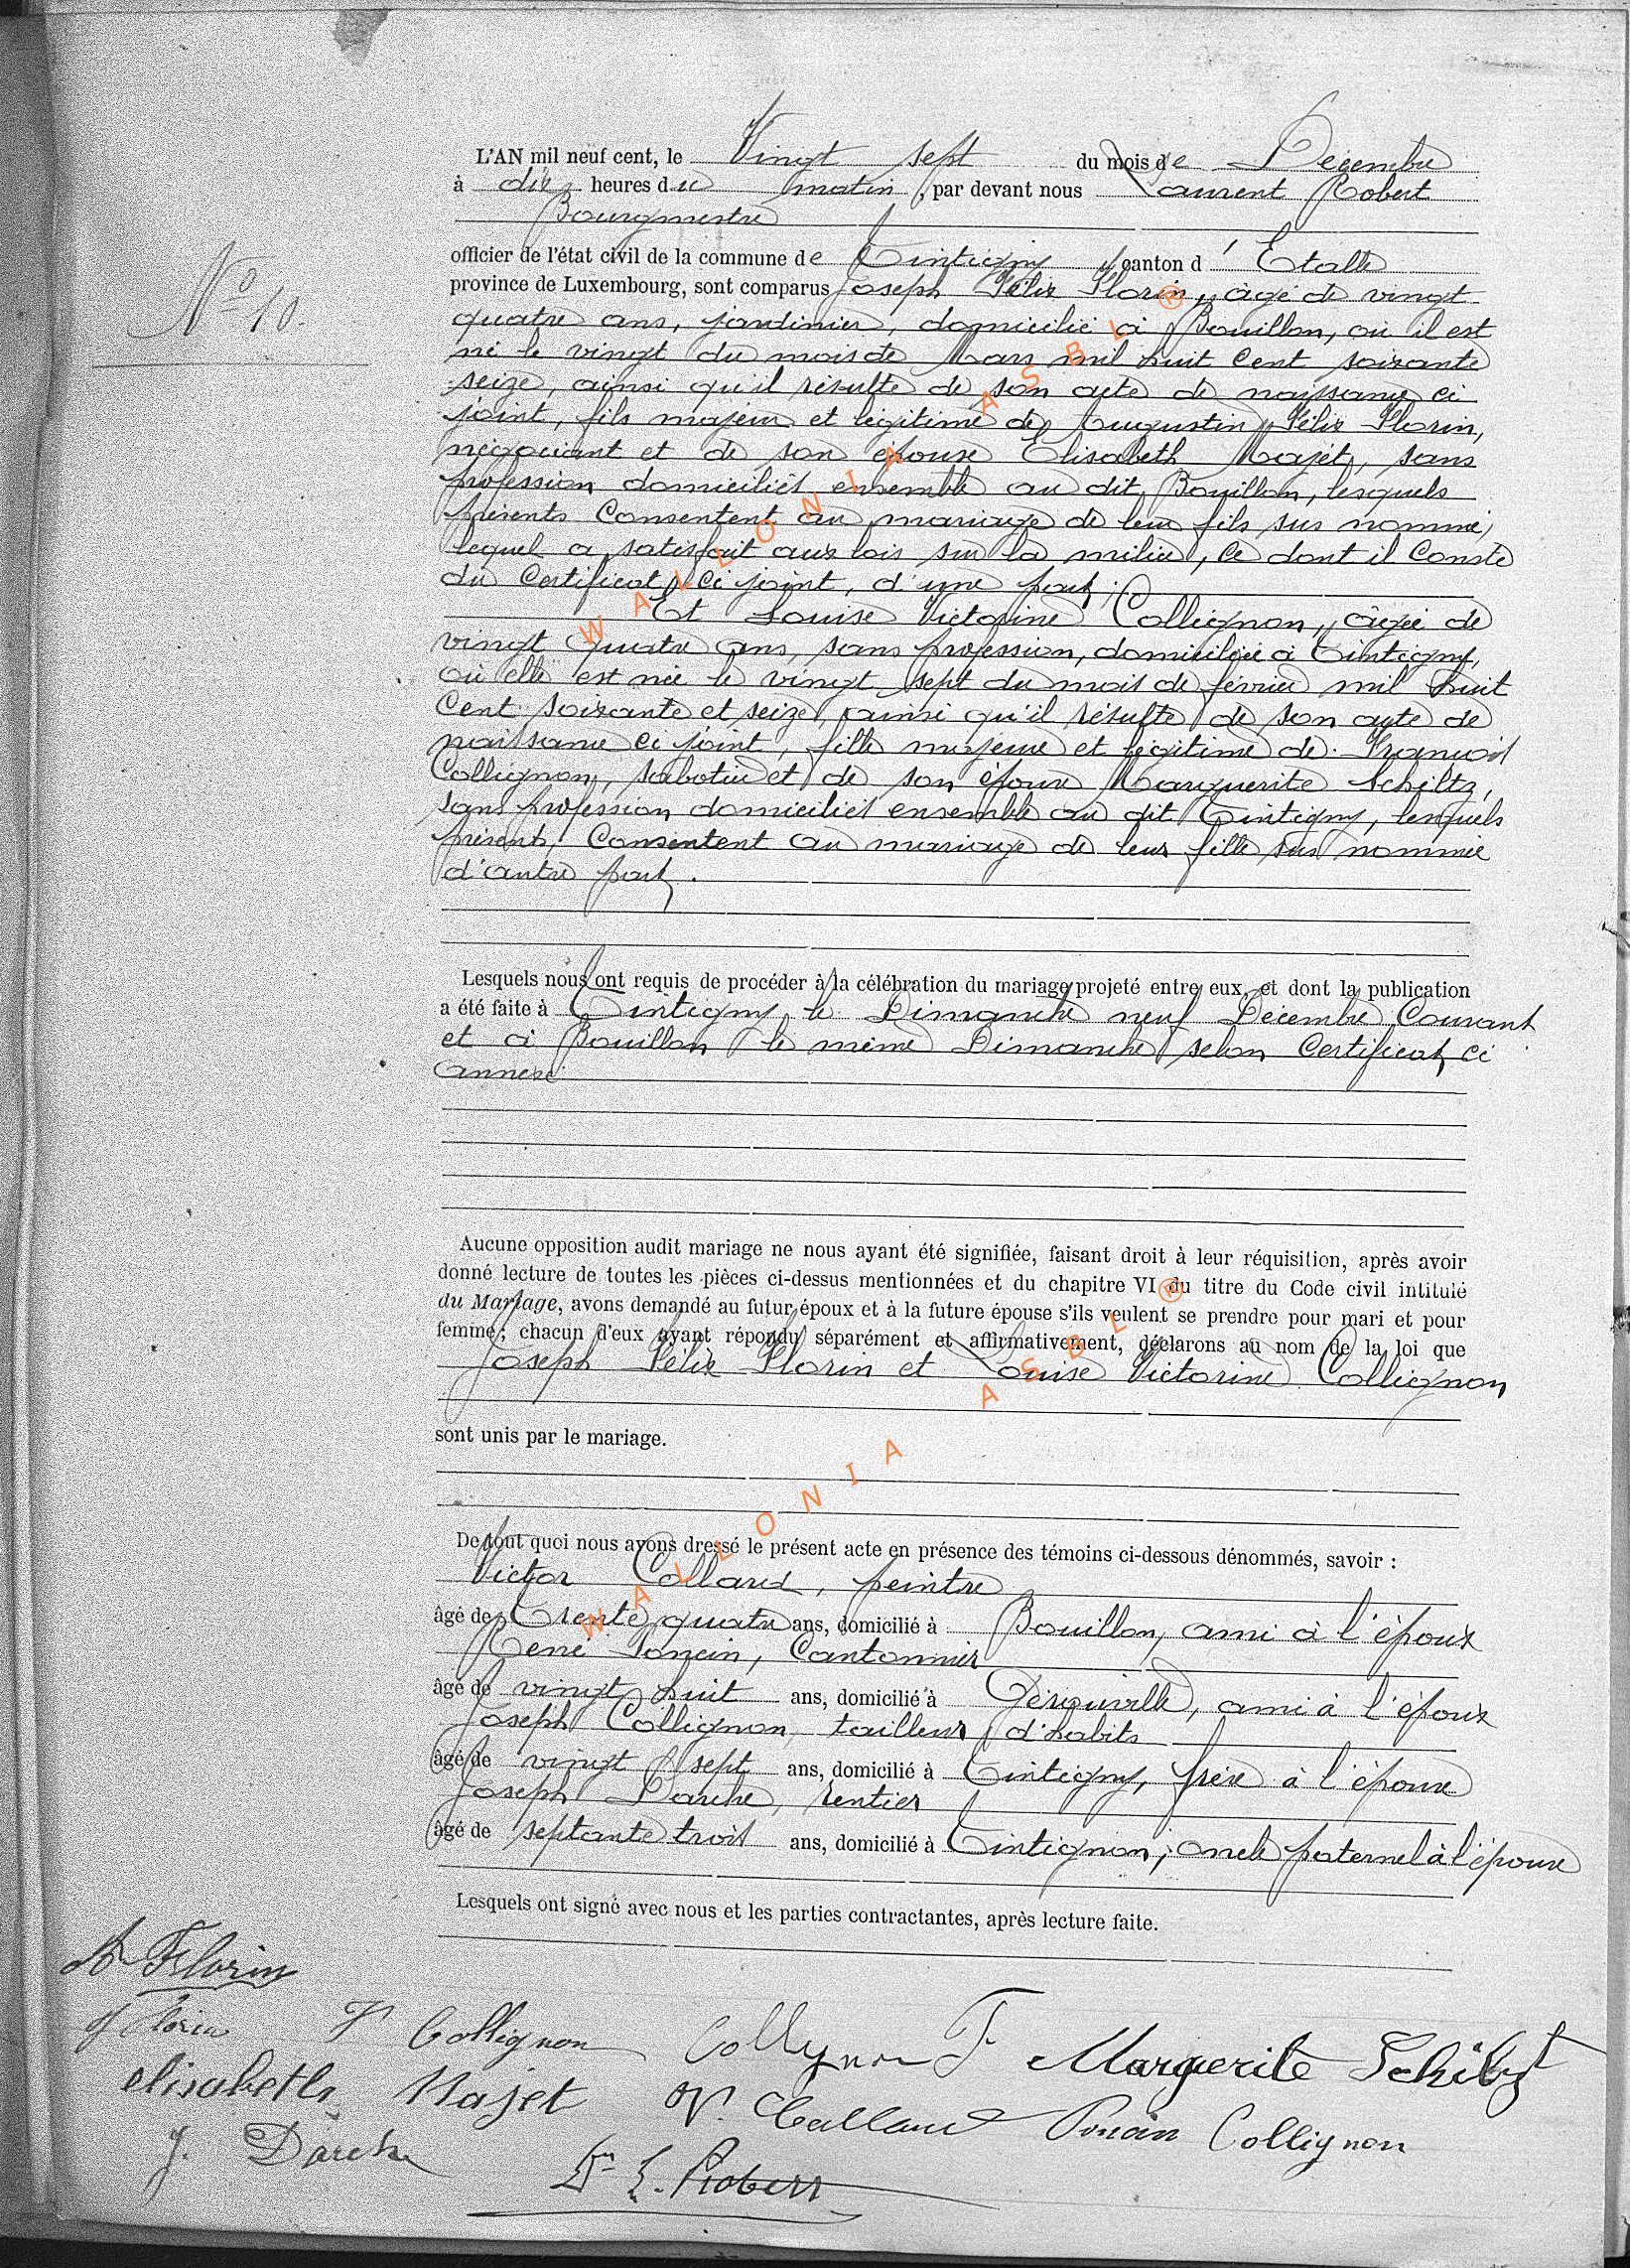 L'AN mil neuf cent, le Vingt sept du mois de Décembre
à dix heures du matin, par devant nous Laurent Robert
Bourgmestre
officier de l'état civil de la commune de Tintigny, canton d'Etalle
N° 10.
province de Luxembourg, sont comparus Joseph Félix Florin, âgé de vingt
quatre ans, jardinier, domicilié à Bouillon, où il est
né le vingt du mois de Mars mil huit cent soixante
seize, ainsi qu'il résulte de son acte de naissance ci
joint, fils majeur et légitime de Augustin Félix Florin,
négociant et de son épouse Elisabeth Majet, sans
profession domiciliés ensemble au dit Bouillon, lesquels
présents Consentent au mariage de leur fils sus nommé,
lequel a satisfait aux lois sur la milice, ce dont il Conste
du Certificat ci joint, d'une part;
Et Louise Victorine Collignon, âgée de
vingt quatre ans, sans profession, domiciliée à Tintigny,
où elle est née le vingt sept du mois de février mil huit
Cent soixante et seize, ainsi qu'il résulte de son acte de
naissance ci joint, fille majeure et légitime de François
Collignon, sabotier et de son épouse Marguerite Schiltz,
sans profession domiciliés ensemble au dit Tintigny, lesquels
présents, Consentent au mariage de leur fille sus nommée
d'autre part.
Lesquels nous ont requis de procéder à la célébration du mariage projeté entre eux, et dont la publication
a été faite à Tintigny le Dimanche neuf Décembre Courant
et à Bouillon le même Dimanche selon Certificat ci
annexé
Aucune opposition audit mariage ne nous ayant été signifiée, faisant droit à leur réquisition, après avoir
donné lecture de toutes les pièces ci-dessus mentionnées et du chapitre VI du titre du Code civil intitulé
du Mariage, avons demandé au futur époux et à la future épouse s'ils veulent se prendre pour mari et pour
femme; chacun d'eux ayant répondu séparément et affirmativement, déclarons au nom de la loi que
Joseph Félix Florin et Louise Victorine Collignon
sont unis par le mariage.
De tout quoi nous avons dressé le présent acte en présence des témoins ci-dessous dénommés, savoir :
Victor Collard, peintre
âgé de Trente quatre ans, domicilié à Bouillon, ami à l'époux
René Poncin, Cantonnier
âgé de vingt huit ans, domicilié à Gérouville, ami à l'époux
Joseph Collignon, tailleur d'habits
âgé de vingt sept ans, domicilié à Tintigny, frère à l'épouse
Joseph Darche, rentier
âgé de septante trois ans, domicilié à Tintignon, oncle paternel à l'épouse
Lesquels ont signé avec nous et les parties contractantes, après lecture faite.
A Florin
J Florin Collignon Collignon F. Marguerite Schiltz
elisabeth Majet V. Collard Poncin Collignon
J. Darche
L. Robert
WALLONIA ASBL ®
WALLONIA ASBL ®